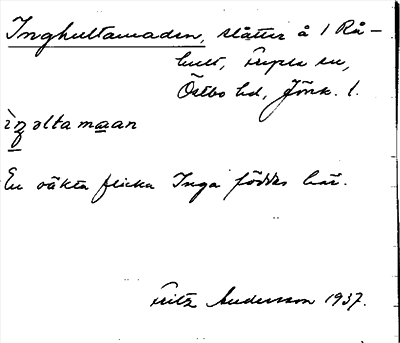 Inghultamaden, slåtter å 1 Rå-
hult, Frycla sn,
Östbo hd, Jönk. l.
ìŋəltamaan
En oäkta flicka Inga föddes här.
Fritz Andersson 1937.